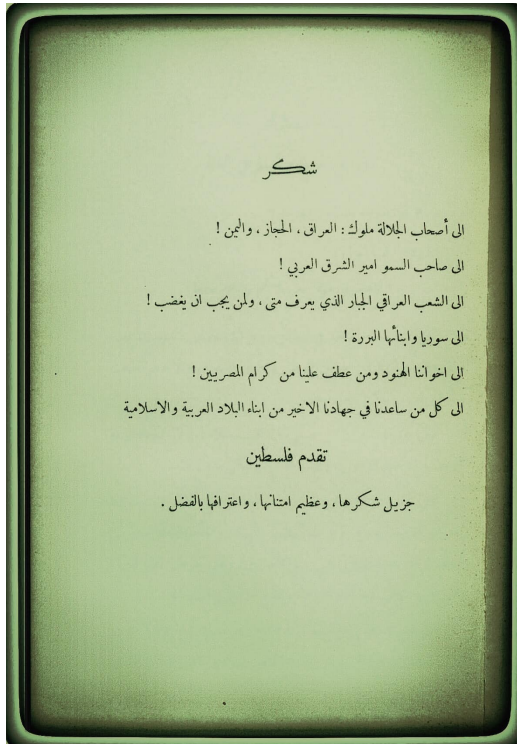 شكر
الى أصحاب الجلالة ملوك : العراق ، الحجاز ، واليمن !
الى صاحب السمو امير الشرق العربي !
الى الشعب العراقي الجبار الذي يعرف متى ، ولمن يجب ان يغضب !
الى سوريا وابنائها البررة !
الى اخواننا الهنود ومن عطف علينا من كرام المصريين !
الى كل من ساعدنا في جهادنا الاخير من ابناء البلاد العربية والاسلامية
تقدم فلسطين
جزيل شكرها ، وعظيم امتنانها ، واعترافها بالفضل .